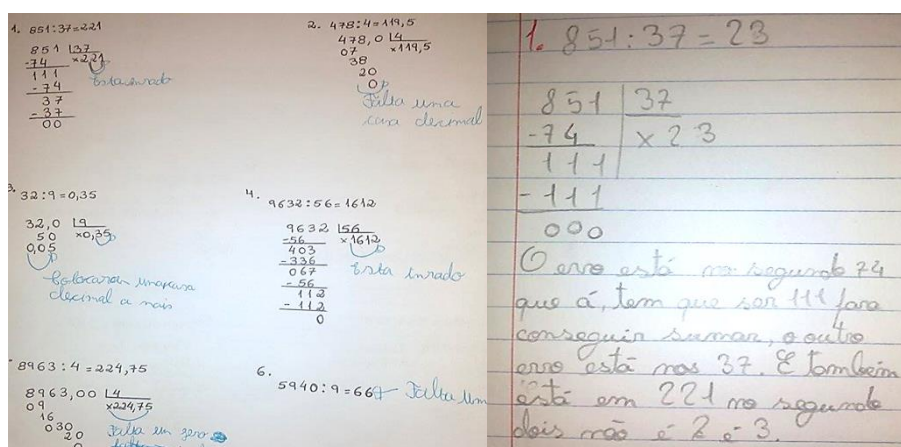 1. 851:37=221
851 37
-74 x221
111
-74
37
-37
00
Esta errado
2. 478:4=119,5
478,0 4
07 x119,5
38
20
0
Falta uma
casa decimal
3. 32:9=0,35
32,0 9
50 x0,35
0,05
Colocaram uma casa
decimal a mais
4. 9632:56=1612
9632 56
-56 x1612
403
-336
067
-56
112
-112
0
Esta errado
8963:4=224,75
8963,00 4
09 x224,75
16
030
20
0
Falta um zero
6.
5940:9=66 Falta um
1. 851:37=23
851 37
-74 x23
111
-111
000
O erro está no segundo 74
que á, tem que ser 111 para
conseguir sumar, o outro
erro está nos 37. E também
está em 221 no segundo
dois não é 2 é 3.